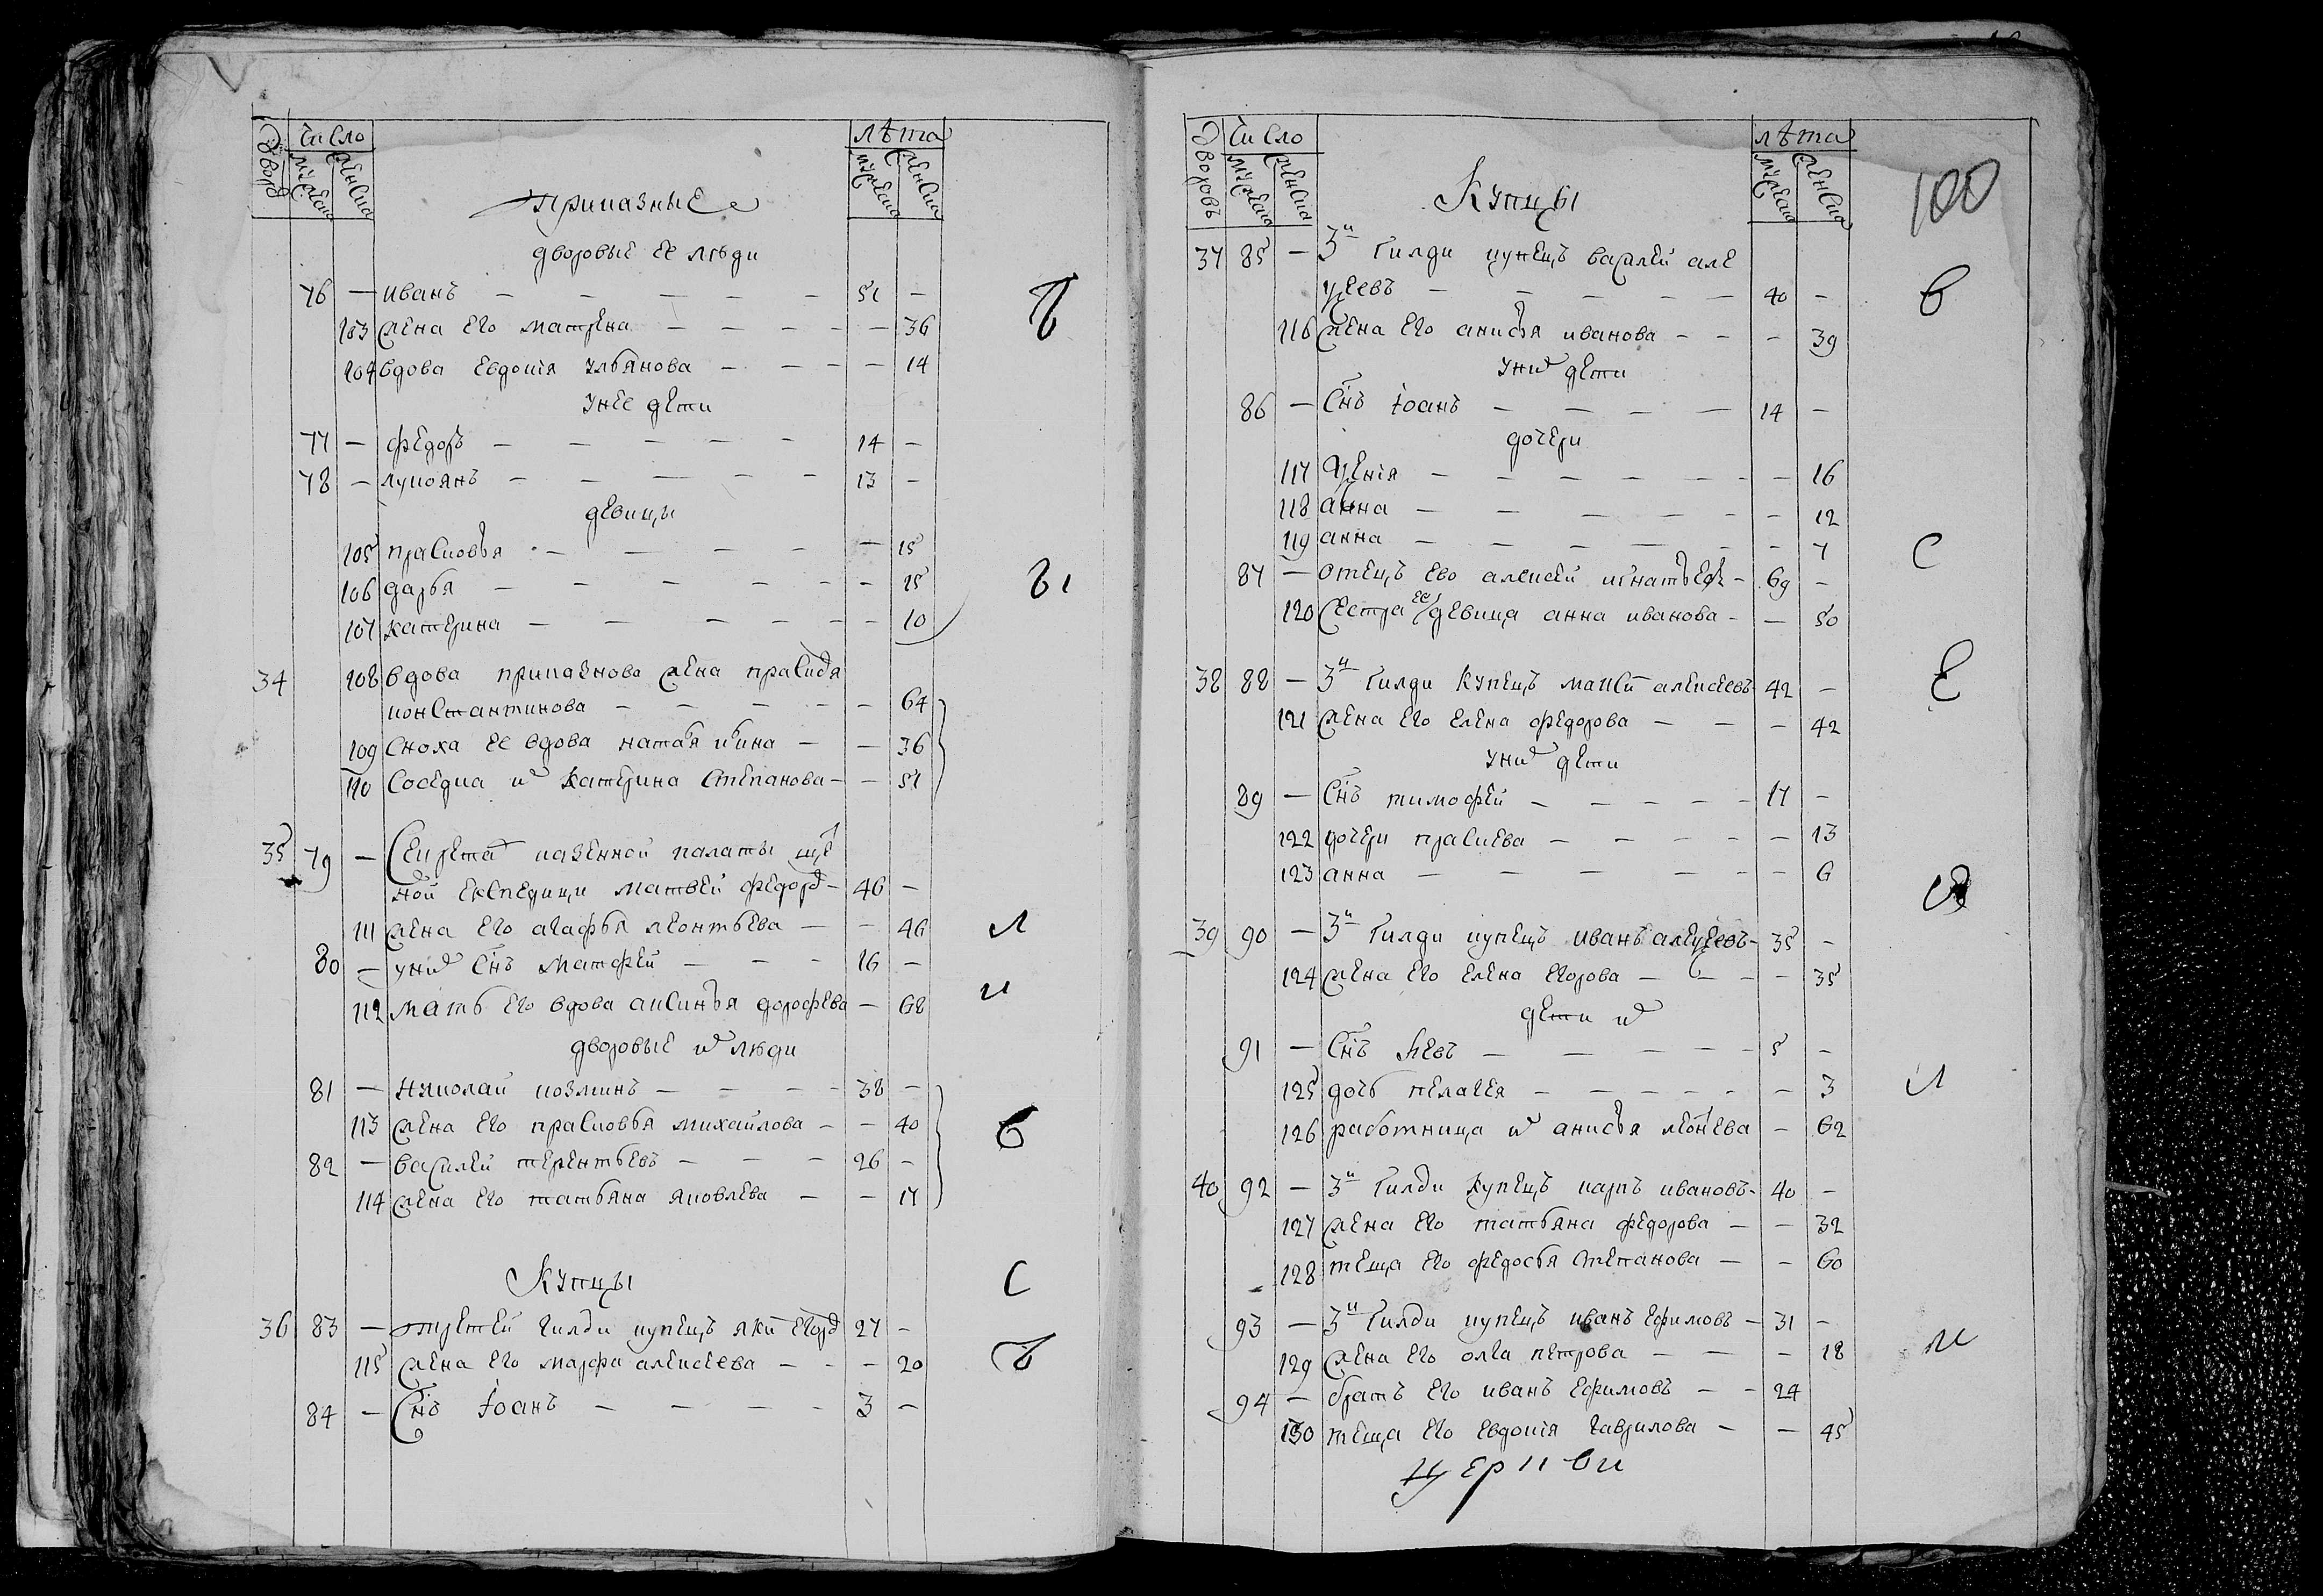 дворовъ число лѣта
мужеска женска мужеска женска
приказные
дворовые ее люди
76 — иванъ — — — — — 51 —
103 жена его матрена — — — — — 36
104 вдова евдокiя ульянова — — — — 14
у нее дети
77 — федоръ — — — — — 14 —
78 — лукоянъ — — — — — 13 —
девицы
105 прасковья — — — — — 15
106 дарья — — — — — — 15
107 катерина — — — — — — 10
34 108 вдова приказнова жена
константинова — — — — — 64
109 сноха ее вдова наталья — — 36
110 соседка их катерина степанова — — 51
35 79 — секретаръ казенной палаты
ной експедици матвей федоровъ — 46 —
111 жена его агафья леонтьева — — 46
80 — у них снъ матфей — — — 16 —
112 мать его вдова аксинья дорофеева — 68
дворовые их люди
81 — николай козминъ — — — — 38 —
113 жена его прасковья михайлова — — 40
82 — василей терентьевъ — — — 26 —
114 жена его татьяна яковлева — — 17
Купцы
36 83 — третей гилди купецъ яки егоровъ 27 —
115 жена его марфа алексеева — — — 20
84 — снъ iоанъ — — — — 3 —
дворовъ число лѣта
мужеска женска мужеска женска
100
Купцы
37 85 — 3й гилди купецъ василей але
ѯеевъ — — — — — 40 —
116 жена его анисья иванова — — — 39
у них дети
86 — снъ iоанъ — — — — 14 —
дочери
117 ѯенiя — — — — — — — 16
118 анна — — — — — — — 12
119 анна — — — — — — — 7
87 — отецъ ево алексей игнатьевъ — 69 —
120 сестра ее девица анна иванова — — 50
38 88 — 3й гилди купецъ алексеевъ 42 —
121 жена его елена федорова — — — 42
у них дети
89 — снъ тимофей — — — — — 17 —
122 дочери прасковья — — — — — 13
123 анна — — — — — — 6
39 90 — 3й гилди купецъ иванъ алеѯеевъ — 35 —
124 жена его елена егорова — — — — 35
дети их
91 — снъ левъ — — — — — 5 —
125 дочь пелагея — — — — — — 3
126 работница их анисья леонтева — 62
40 92 — 3й гилди купецъ карпъ ивановъ — 40 —
127 жена его татьяна федорова — — 32
128 теща его федосья степанова — — 60
93 — 3й гилди купецъ иванъ ефимовъ — 31 —
129 жена его олга петрова — — — 18
94 — братъ его иванъ ефимовъ — — 24
130 теща его евдокiя гаврилова — — 45
церкви